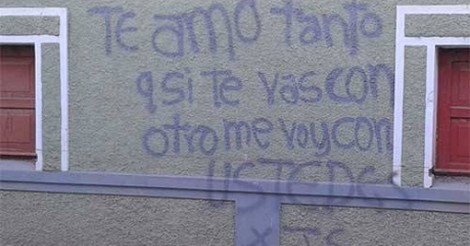 TE amo tanto
q si te vas con
otro me voy con
USTEDES
x JS